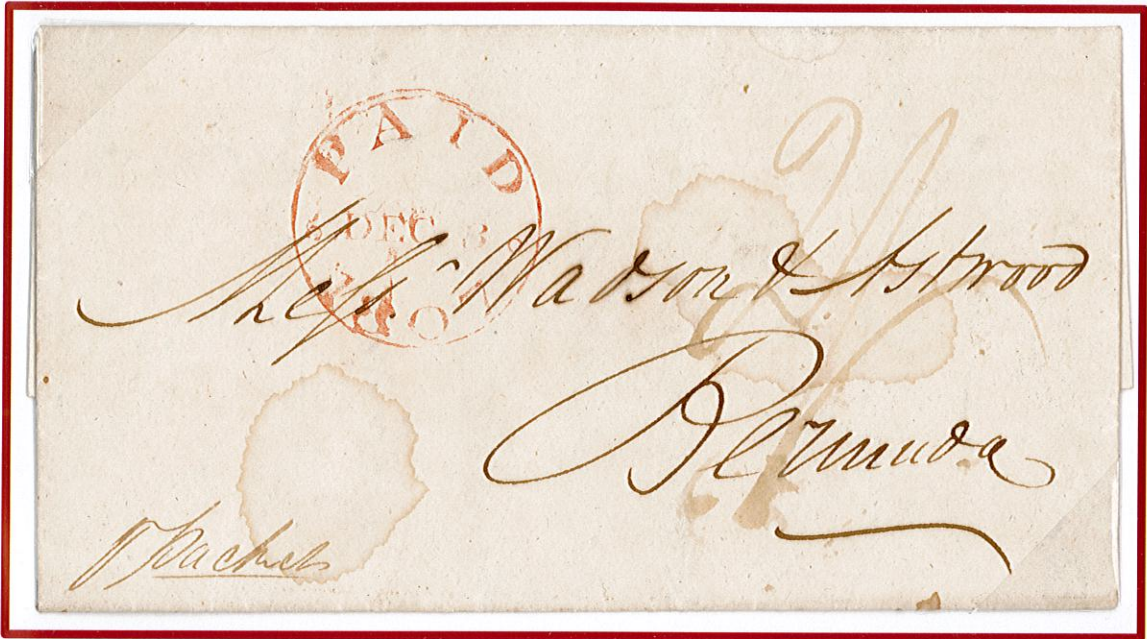 PAID
DEC 3
Messrs Wadson & Astwood
Bermuda
p packet